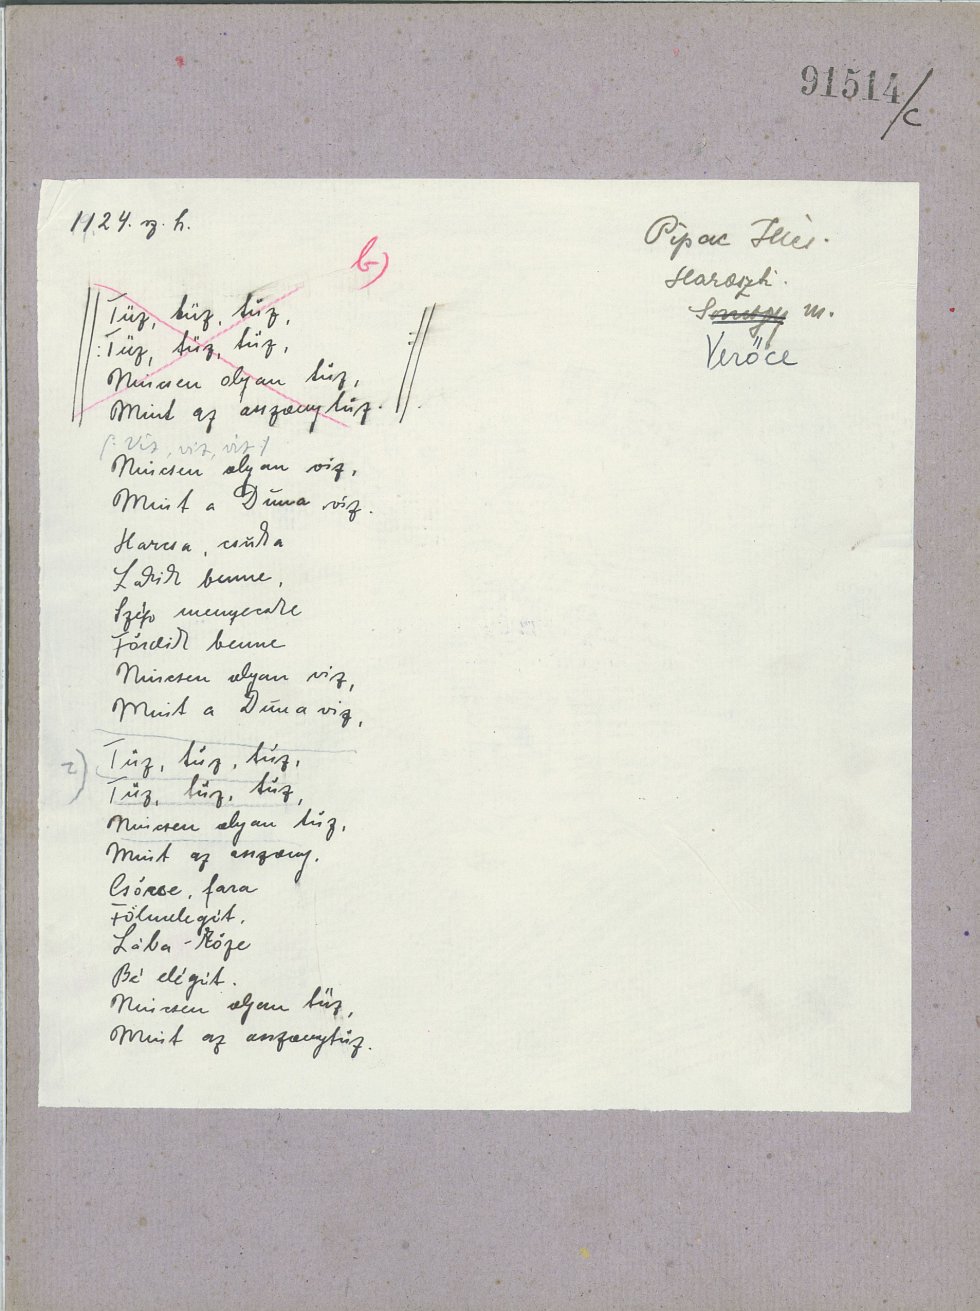 91514/c
1124. sz. h.
Pipac Illés.
b)
Haraszti.
m.
Verőce
Tüz, tüz, tüz,
:Tüz, tüz, tüz, :
Nincsen olyan tüz,
Mint az asszonytüz.
/: Viz, viz, viz :/
Nincsen olyan viz,
Mint a Duna viz.
Harcsa, csuka
Lakik benne,
Szép menyecske
Fördik benne
Nincsen olyan viz,
Mint a Duna viz,
2)
Tüz, tüz, tüz,
Tüz, tüz, tüz,
Nincsen olyan tüz,
Mint az asszony.
Csöcse, fara
Fölmelegit.
Lába-köze
Bé elégit.
Nincsen olyan tüz,
Mint az asszonytüz.